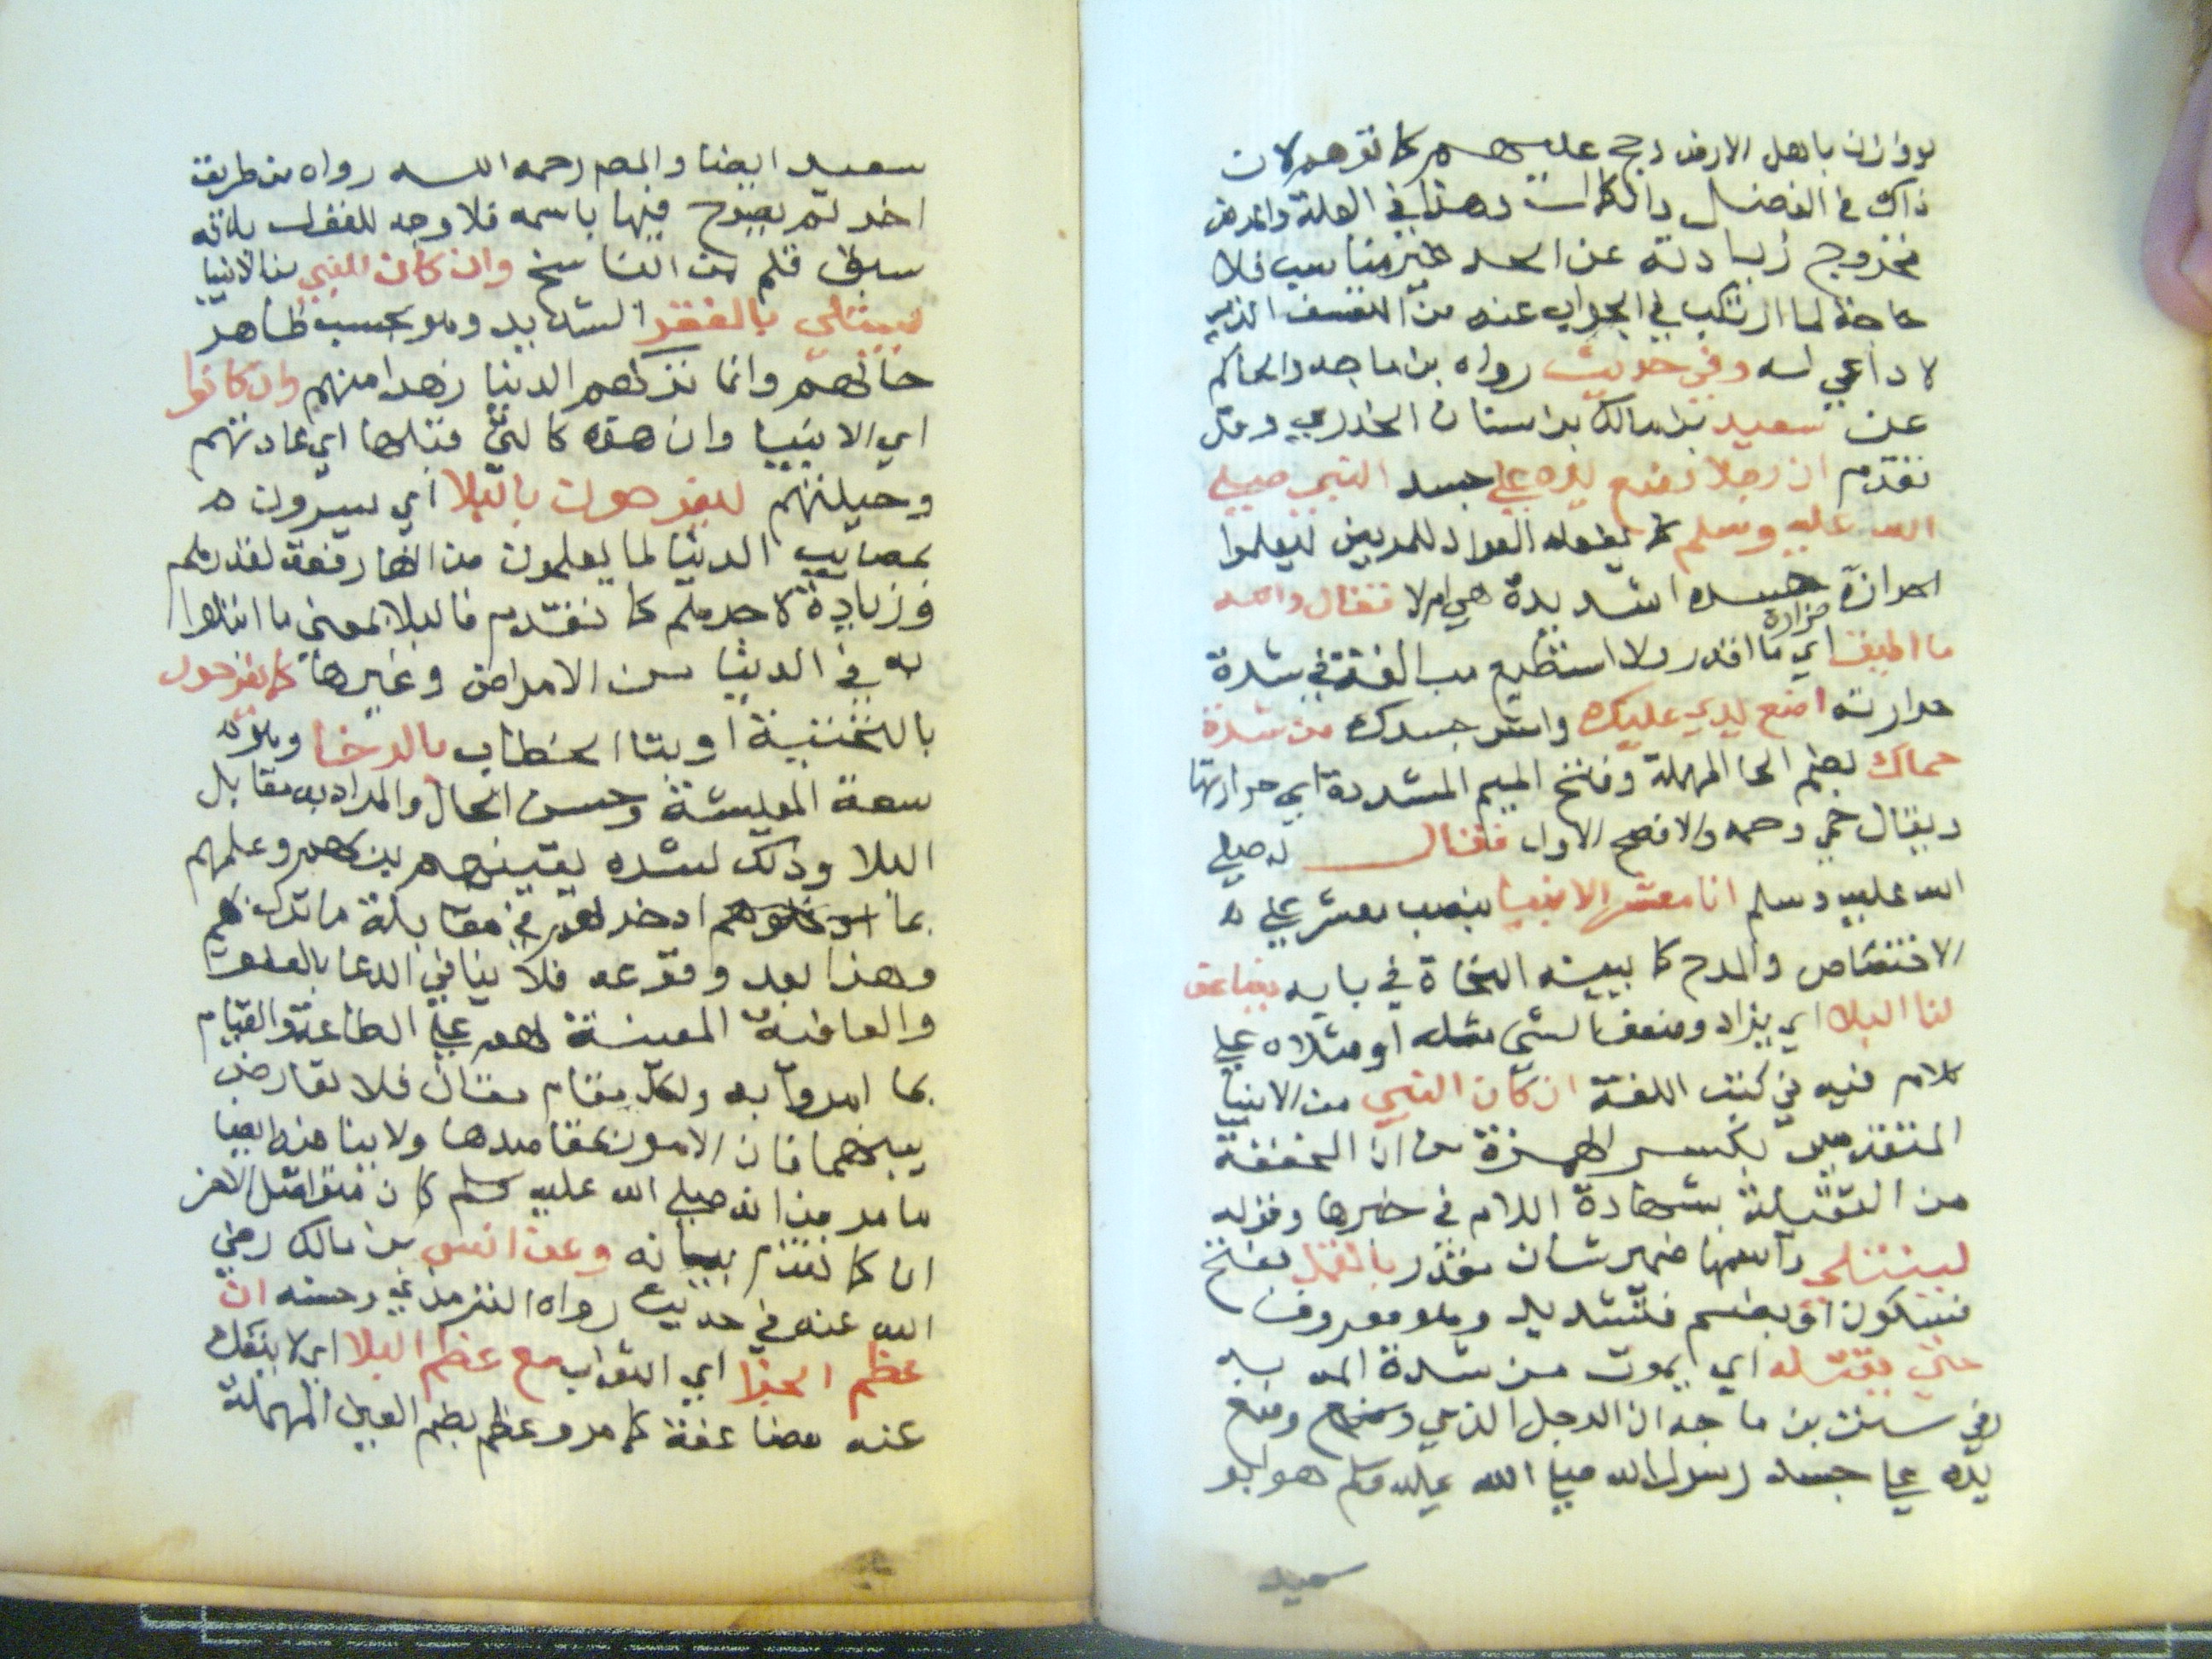 لو وازن باهل الارض رجح عليهم كا توهم لان
ذاك في الفضل والكمالات وهذا في العلة والمرض
فخروج زيادته عن الحد غير مناسب فلا
حاجة لما ارتكب في الجواب عنه من التعسف الذي
لا داعي له وفي حديث رواه بن ماجه والحاكم
عن سعيد بن مالك بن سنان الخدري وقد
تقدم ان رجلا وضع يده علي جسد النبي صلي
الله عليه وسلم كما يفعله العواد للمريض ليعلموا
احرارة جسده اشديدة هي ام لا فقال والله
حرارة
ما اطيق اي ما اقدر ولا استطيع مبالغة في شدة
حرارته اضع يدي عليك وامس جسدك من شدة
حماك بضم الحا المهملة وفتح الميم المشددة اي حرارتها
ويقال حمي وحمه والافصح الاول فقال له صلي
الله عليه وسلم انا معشر الانبيا بنصب معشر علي ه
الاختصاص والمدح كا بينه النحاة في بابه يضاعف
لنا البلا اي يزاد وضعف الشي مثله او مثلاه علي
كلام فيه في كتب اللغة ان كان النبي من الانبيا
المتقدمين بكسر الهمزة من ان المخففة
من الثقيلة بشهادة اللام في خبرها وقوله
ليبتلي واسمها ضمير شان مقدر بالقمل بفتح
فسكون او بضم فتشديد وهو معروف
حتي يقتله اي يموت من شدة المه به
وفي سنن بن ماجه ان الرجل الذي وضع
يده علي جسد رسول الله صلي الله عليه وسلم هو ابو
سعيد
سعيد ايضا والمص رحمه الله رواه من طريق
اخر لم يصرح فيها باسمه فلا وجه للقول بانه
سبق قلم من الناسخ وان كان النبي من الانبيا
ليبتلي بالفقر الشديد وهو بحسب ظاهر
حالهم وانما تركهم الدنيا زهدا منهم وان كانوا
اي الانبيا وان هذه كالتي قبلها اي عادتهم
وحيلتهم ليفرحون بالبلا اي يسرون ه
بمصايب الدنيا لما يعلمون من انها رفعة لقدرهم
وزيادة لاجرهم كا تقدم فالبلا بمعني ما ابتلوا
به في الدنيا من الامراض وغيرها كما يفرحون
بالتحتية او بتا الخطاب بالرخا وهو
سعة المعيشة وحسن الحال والمراد به مقابل
البلا وذلك لشدة يقينهم بربهم وعلمهم
بما ادخر لهم في مقابلة ما ترك لهم
وهذا بعد وقوعه فلا ينافي الدعا بالعفو
والعافية المعينة لهم علي الطاعة والقيام
بما امروا به ولكل مقام مقال فلا تعارض
بينهما فان الامور بمقاصدها ولا ينافيه ايضا
ما مر من انه صلي الله عليه وسلم كان متواصل الاحز
ان كا تقدم بيانه وعن انس بن مالك رضي
الله عنه في حديث رواه الترمذي وحسنه ان
عظم الجزا اي الثواب مع عظم البلا اي لا ينفك
عنه مضاعفة كما مر وعظم بضم العين المهملة